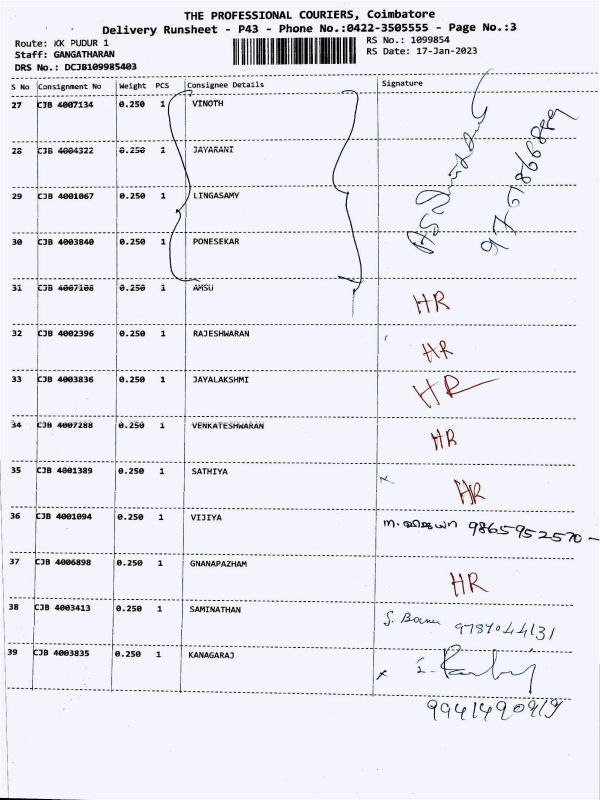 THE PROFESSIONAL COURIERS, Coimbatore
Delivery Runsheet - P43 - Phone No.:0422-3505555 - Page No.:3
Route: KK PUDUR 1
RS No.: 1099854
Staff: GANGATHARAN
RS Date: 17-Jan-2023
DRS No.: DCJB109985403
S No Consignment No Weight PCS Consignee Details Signature
27 CJB 4007134 0.250 1 VINOTH
28 CJB 4004322 0.250 1 JAYARANI
29 CJB 4001067 0.250 1 LINGASAMY
30 CJB 4003840 0.250 1 PONESEKAR
31 CJB 4007108 0.250 1 AMSU HR
32 CJB 4002396 0.250 1 RAJESHWARAN HR
33 CJB 4003836 0.250 1 JAYALAKSHMI HR
34 CJB 4007288 0.250 1 VENKATESHWARAN HR
35 CJB 4001389 0.250 1 SATHIYA HR
36 CJB 4001094 0.250 1 VIJIYA 9865952570
37 CJB 4006898 0.250 1 GNANAPAZHAM HR
38 CJB 4003413 0.250 1 SAMINATHAN 9787044131
39 CJB 4003835 0.250 1 KANAGARAJ
9941490919